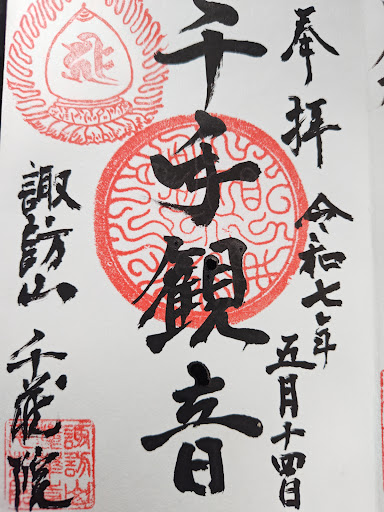 奉拝 令和七年 五月十四日
千手観音
諏訪山 千蔵院